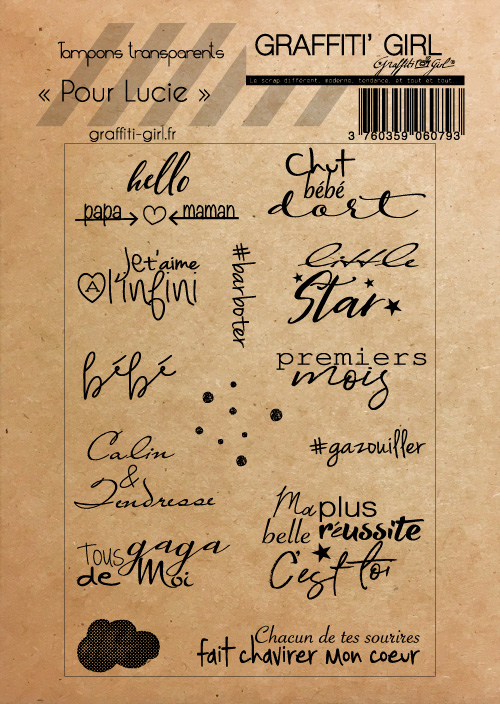 Tampons transparents
« Pour Lucie »
graffiti-girl.fr
GRAFFITI' GIRL
Graffiti Girl
Le scrap différent, moderne, tendance, et tout et tout.
3 760359 060793
hello
papa maman
Chut
bébé
dort
Je t'aime
A l'infini
#barboter
little
Star
bébé
premiers
mois
#gazouiller
Calin
&
Tendresse
Ma plus
belle réussite
C'est toi
Tous gaga
de Moi
Chacun de tes sourires
fait chavirer mon coeur